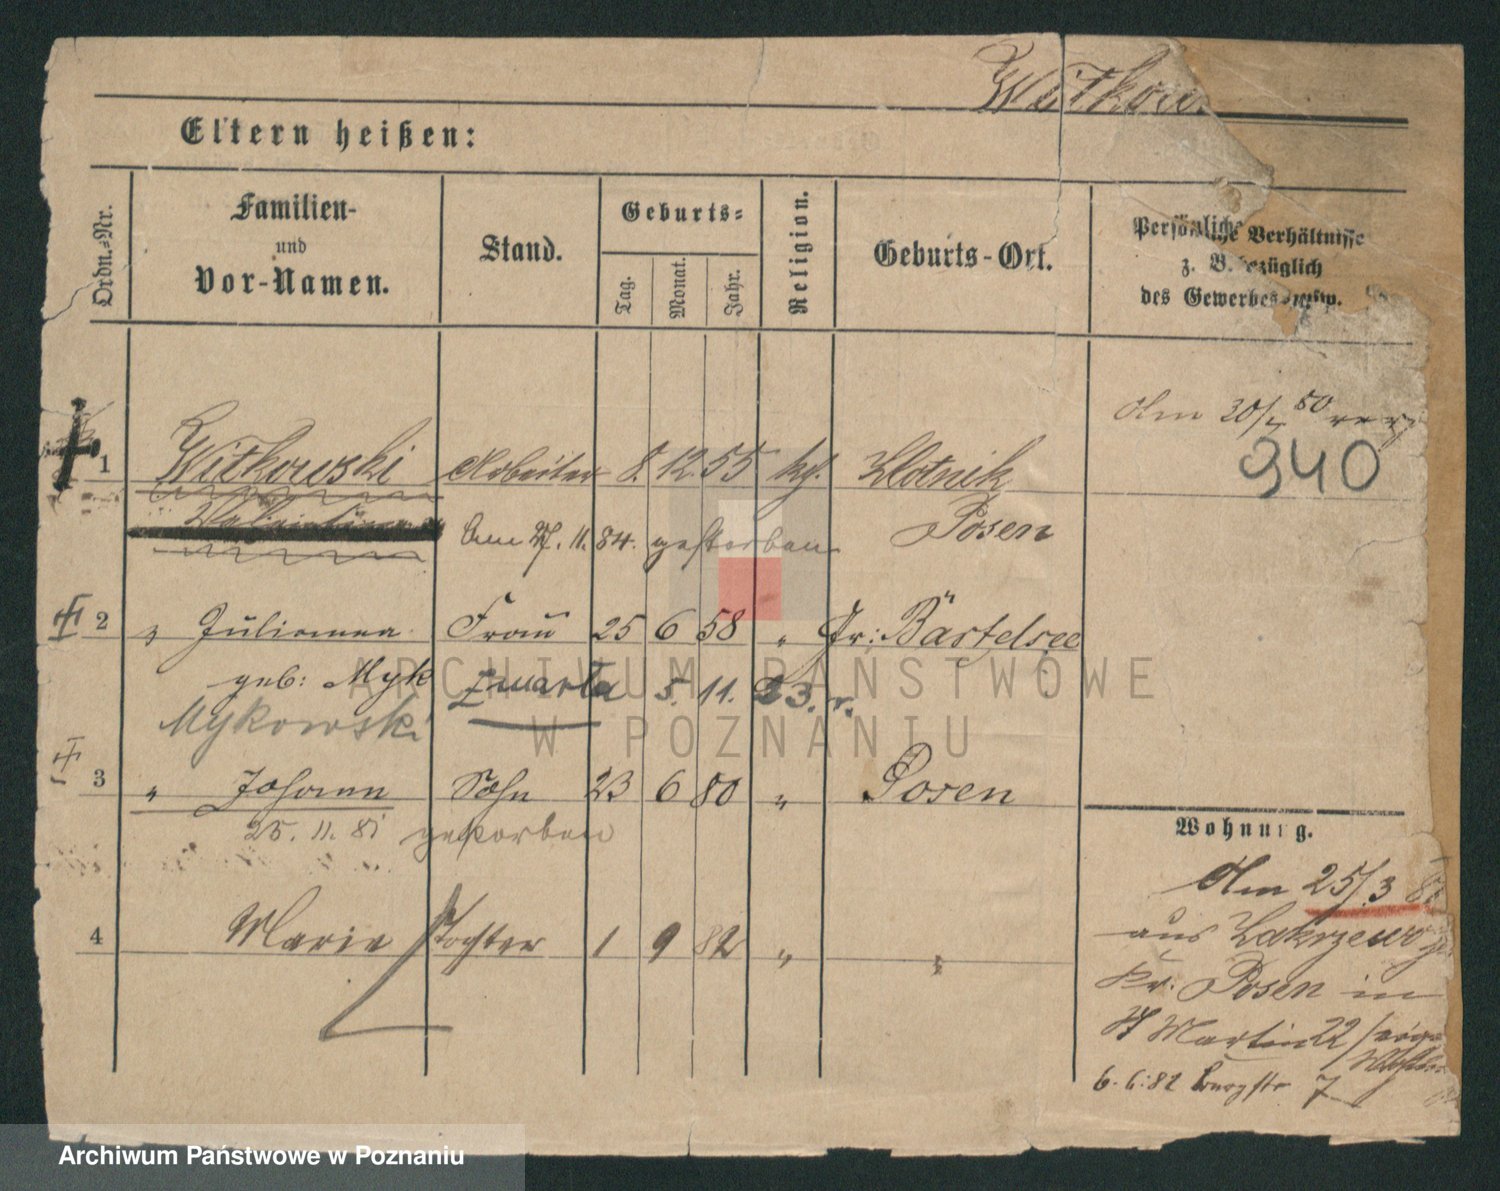 Witkow
Eltern heißen:
Ordn.-Nr.
Familien-
und
Vor-Namen.
Stand.
Geburts-
Tag.
Monat.
Jahr.
Religion.
Geburts-Ort.
Persönliche Verhältnisse
z. B. bezüglich
des Gewerbes
Am 30/
940
1 Witkowski Arbeiter 8. 12. 55 kt. Zlotnik
Posen
Am 27. 11. 84. gestorben
2 " Julianna Frau 25 6 58 " Kr: Bästelsee
geb: Myk
Zwarta 5. 11. 23. r.
Mykowski
3 " Johann Sohn 23 6 80 " Posen
25. 11. 81 gestorben
4 Marie Tochter 1 9 82 " "
Wohnung.
Am 25/3 8
aus
Kr. Posen in
St Martin 22
6.6.82 7
ARCHIWUM PAŃSTWOWE
W POZNANIU
Archiwum Państwowe w Poznaniu